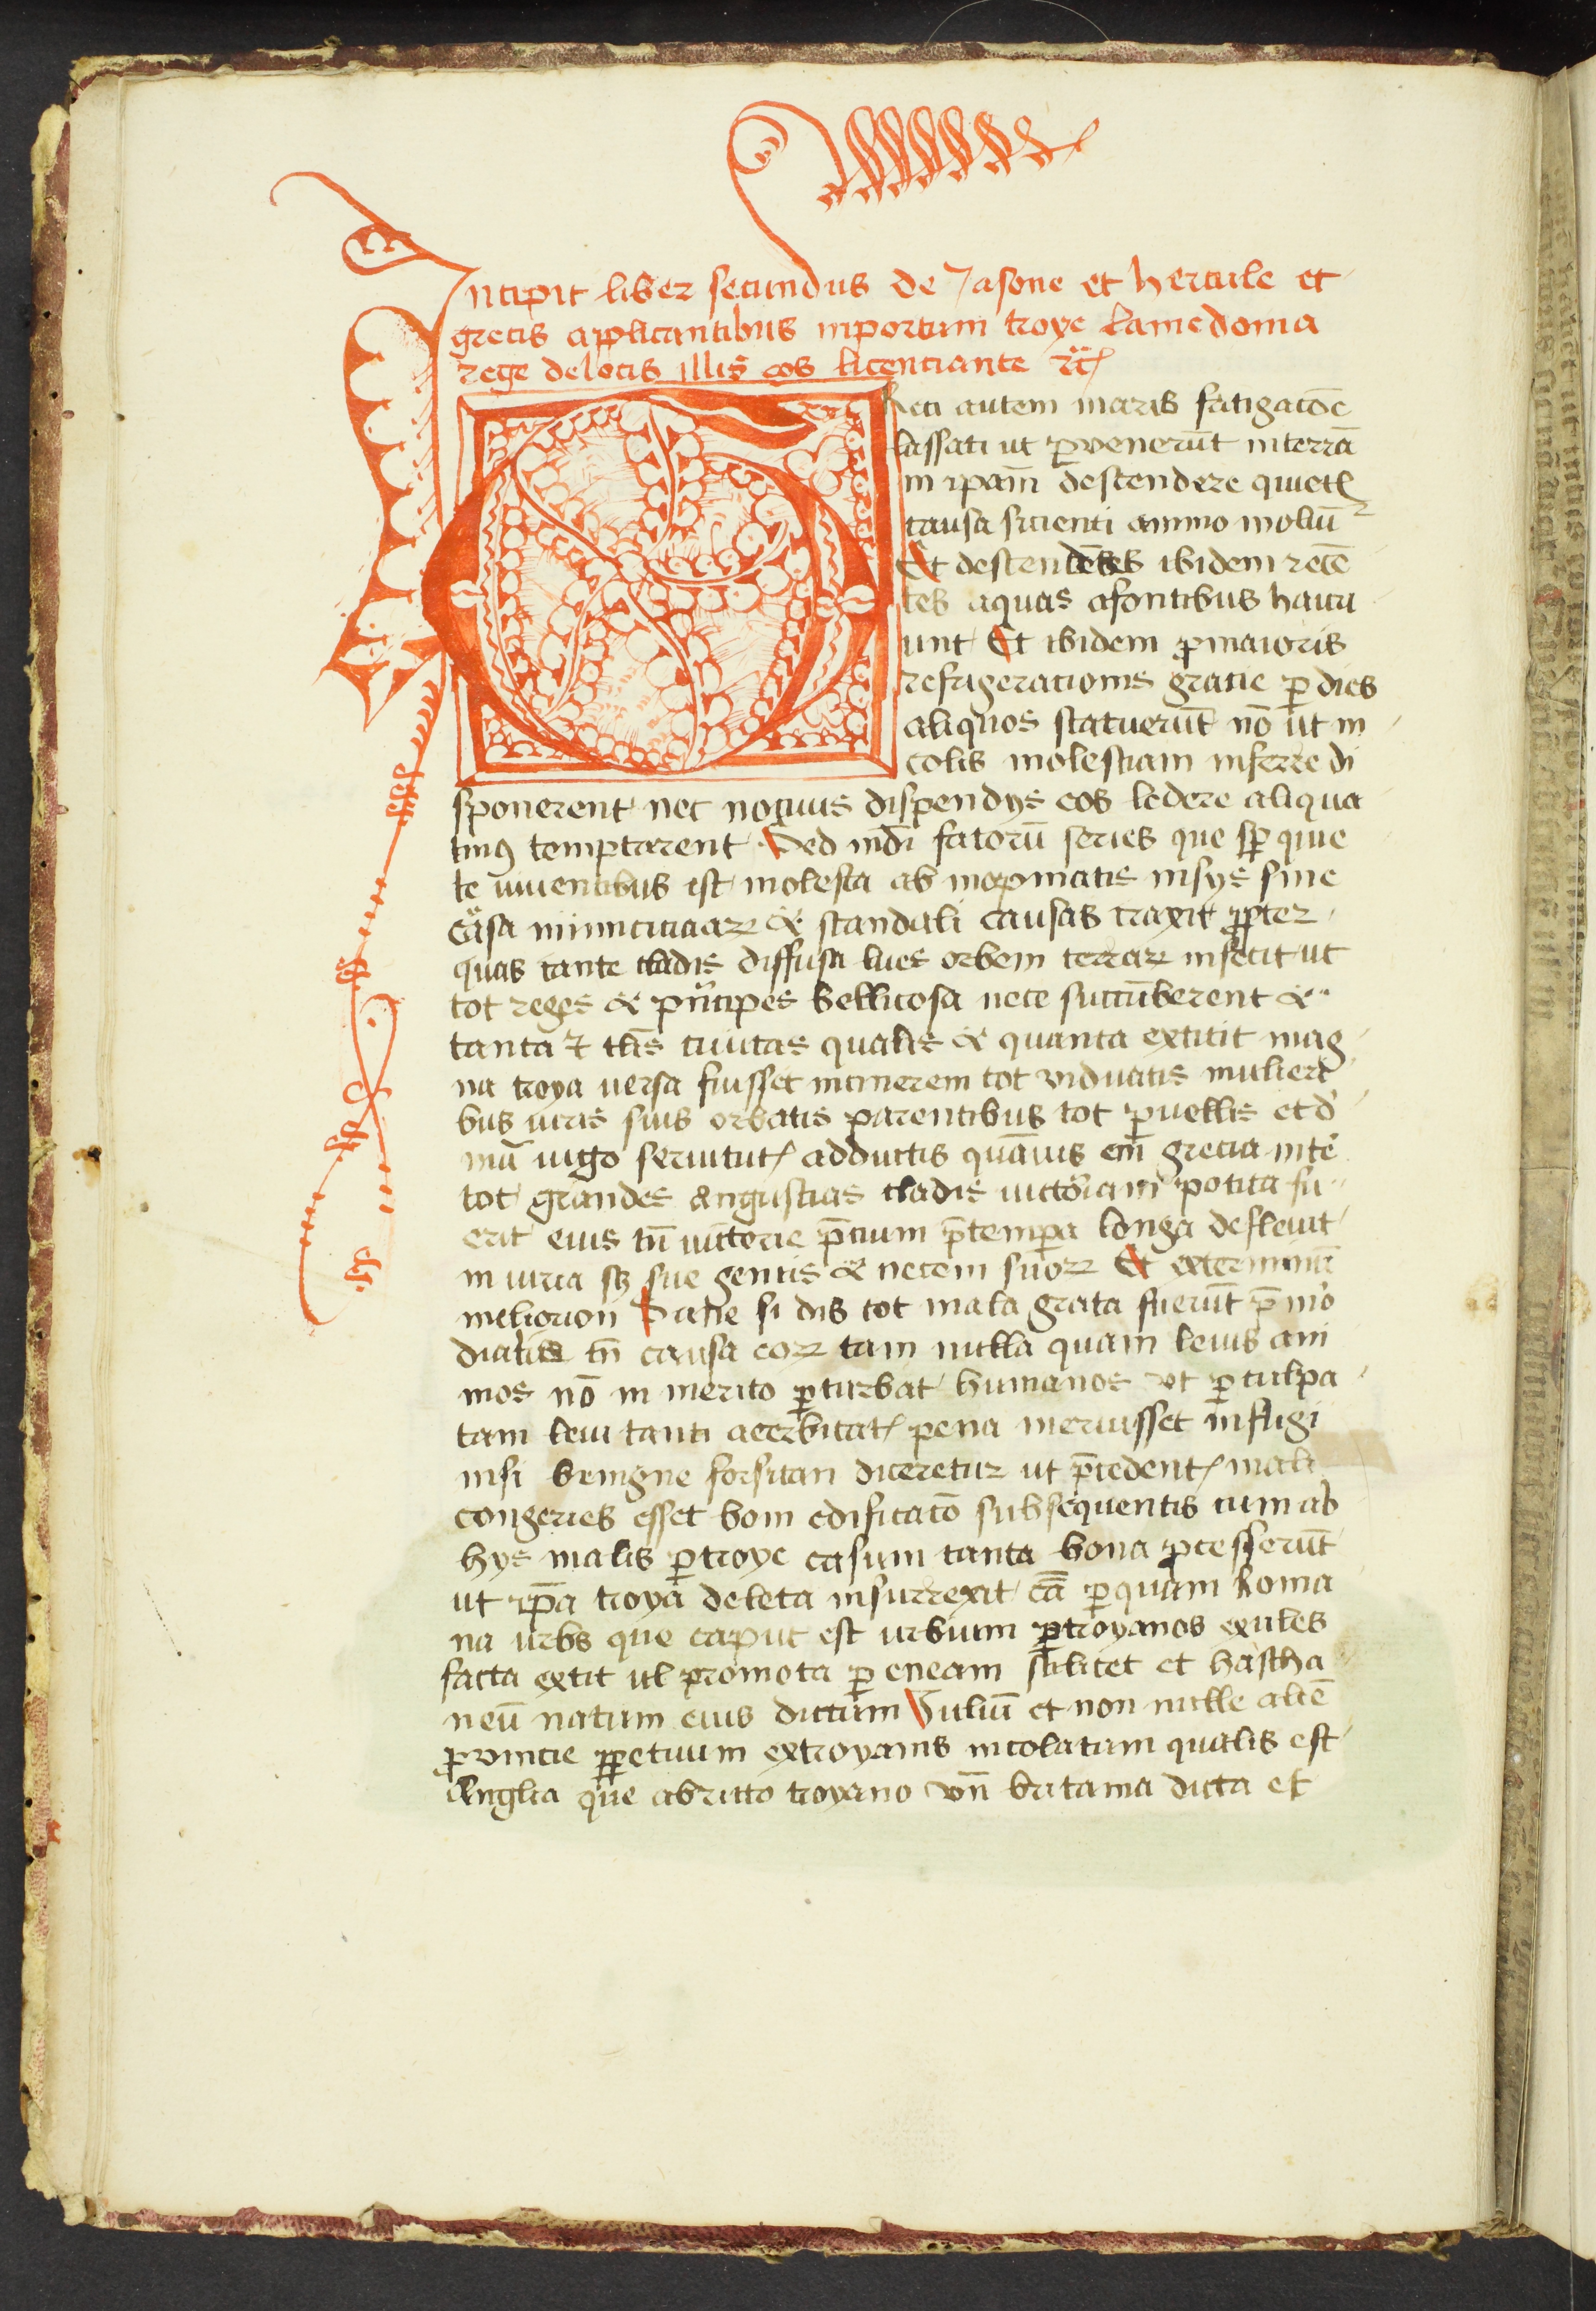 Incipit liber secundus de Jasone et hercule et
grecis applicantibus inportum troye lamedonta
rege delocis illis eos licenciante ꝛc̈
Greci autem maris fatigacōe
lassati ut ꝑvenerūt interrā
in ipam̄ descendere quietꝭ
causa sicienti animo moliūᵗ
Et descendētes ibidem recē
tes aquas afontibus hauri
unt Et ibidem ꝓmaioris
refrigeracionis gratie ꝑ dies
aliquos statuerūt nō ut in
colis molestiam inferre di
sponerent nec nociuis dispendijs eos ledere aliqua
tinꝰ temptarent Sed inuidi fatorū series que sꝑ quie
te uiuentibus est molesta ab inopinatis insijs sine
causa inimiciciaꝝ & scandali causas traxit ꝓpter
quas tante cladis diffusa lues orbem terraꝝ infecit ut
tot reges & pͥncipes bellicosa nece succūberent &
tanta & tlis ciuitas qualis & quanta extitit mag
na troya uersa fuisset incinerem tot viduatis mulieri
bus uiris suis orbatis parentibus tot puellis et d
mū iugo seruitutꝭ adductis quāuis em̄ grecia inter
tot grandes Angustias cladis uictoriam potita fu
erit eius tn̄ uictorie p̄cium ꝑtempora longa defleuit
iniuria sꝫ sue gentis & necem suoꝝ Et exterminiū
meliorum Sane si dijs tot mala grata fuerūt pͥmor
dialis tn̄ causa eoꝝ tam nulla quam leuis ani
mos nō in merito ꝑturbat humanos ut ꝑ culpa
tam leui tanti acerbitatꝭ pena meruisset infligi
nisi benigne forsitan diceretur ut p̄cedentꝭ mali
congeries esset boni edificacō subsequentis cum ab
hijs malis ꝑtroye casum tanta bona ꝓcesserūt
ut ip̄a troya deleta insurrexit cā ꝑquam Roma
na urbs que caput est urbium ꝑtroyanos exules
facta extit ul promota ꝑ eneam scilicet et hascha
neū natum eius dictum Julium et non nulle alie
ꝓvincie ꝑpetuum extroyanis incolatum qualis est
Anglia que abrutto troyano vn̄ britania dicta est